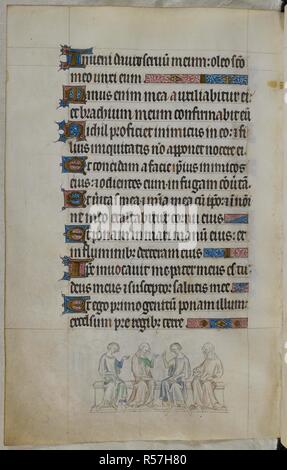 Inveni david servum meum: oleo sco
meo unxi eum
Manus enim mea auxiliabitur ei
et brachium meum confirmabit eu
Nichil proficiet inimicus in eo: &
filius iniquitatis no apponet nocere ei
Et concidam a facie ipius inimicos
eius: & odientes eum in fugam
Et mea cu ipo: & in noi
ne meo exaltabitur cornu eius
Et ponam in mari manu eius: et
in fluminibus dexteram eius
Ipe invocavit me pater meus es tu
deus meus & susceptor salutis mee
Et ego primogenitum ponam illum:
excelsum pre regibus terre
alamy
Image ID: R57H80
www.alamy.com